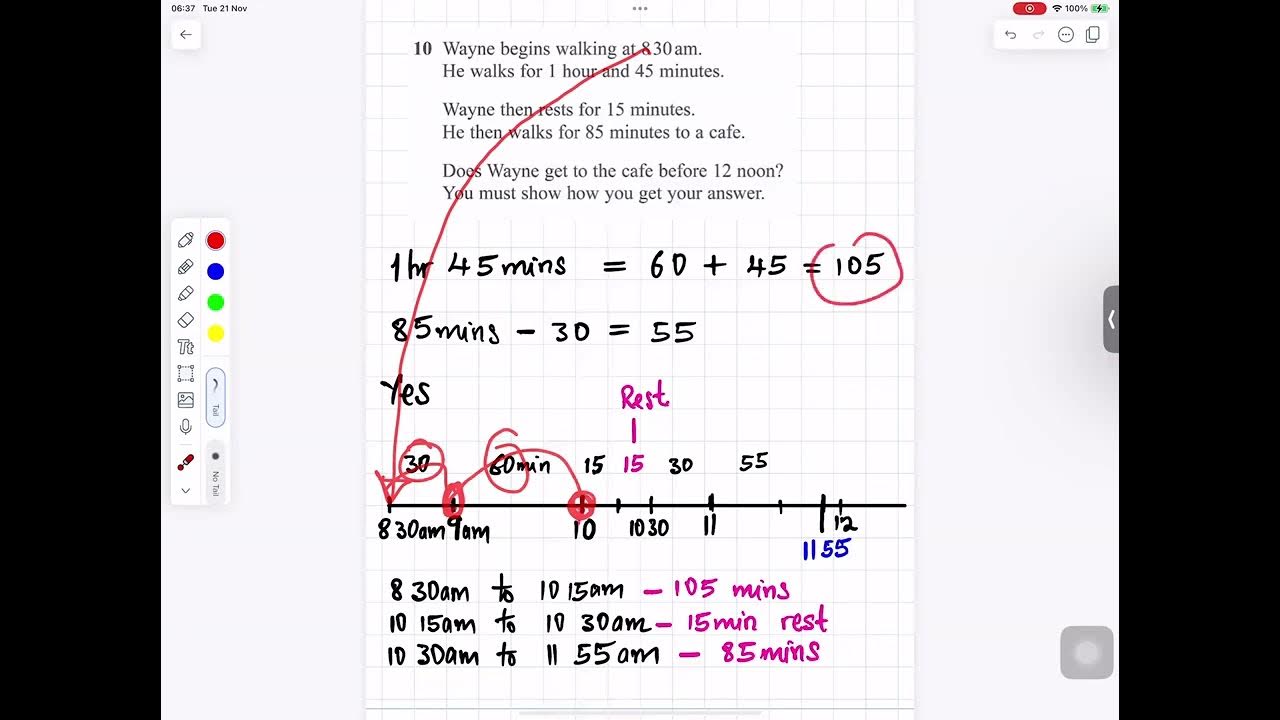 06:37 Tue 21 Nov
100%
10 Wayne begins walking at 8 30 am.
He walks for 1 hour and 45 minutes.
Wayne then rests for 15 minutes.
He then walks for 85 minutes to a cafe.
Does Wayne get to the cafe before 12 noon?
You must show how you get your answer.
1 hr 45 mins = 60 + 45 = 105
85 mins - 30 = 55
Yes
Rest
30 60 min 15 15 30 55
8 30am 9am 10 10 30 11 12
11 55
8 30am to 10 15am - 105 mins
10 15am to 10 30am - 15 min rest
10 30am to 11 55am - 85 mins
Tt
Tail
No Tail